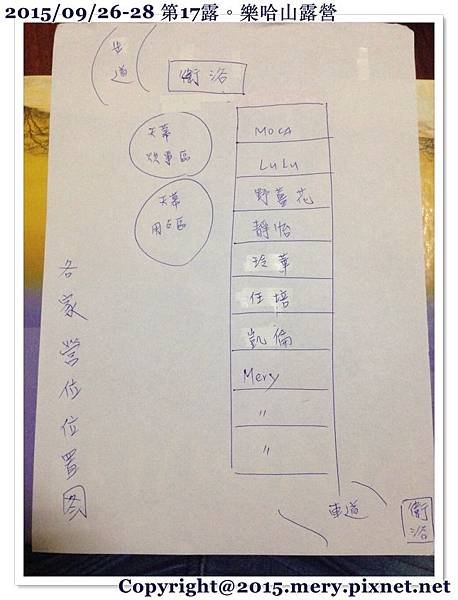 2015/09/26-28 第17露。樂哈山露營
步道
衛浴
天幕
炊事區
天幕
用占區
MOCA
LuLu
野薑花
靜怡
玲華
佳培
凱倫
Mery
〃
〃
各家營位位置图
車道
衛浴
Copyright@2015.mery.pixnet.net